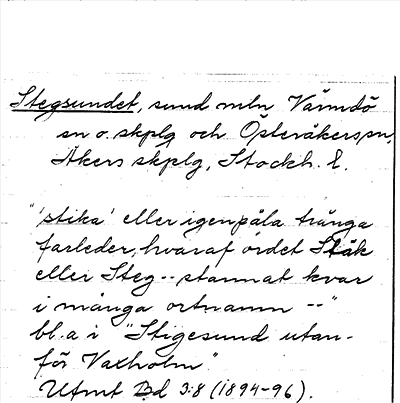 Stegsundet, sund mln Värmdö
sn o. skplg och Österåkers sn,
Åkers skplg, Stockh. l.
"'stika' eller igenpåla trånga
farleder, hvaraf ordet Stäk
eller Steg -- stannat kvar
i många ortnamn --"
bl.a i "Stigesund utan-
för Vaxholm"
Ufmt Bd 3:8 (1894-96).